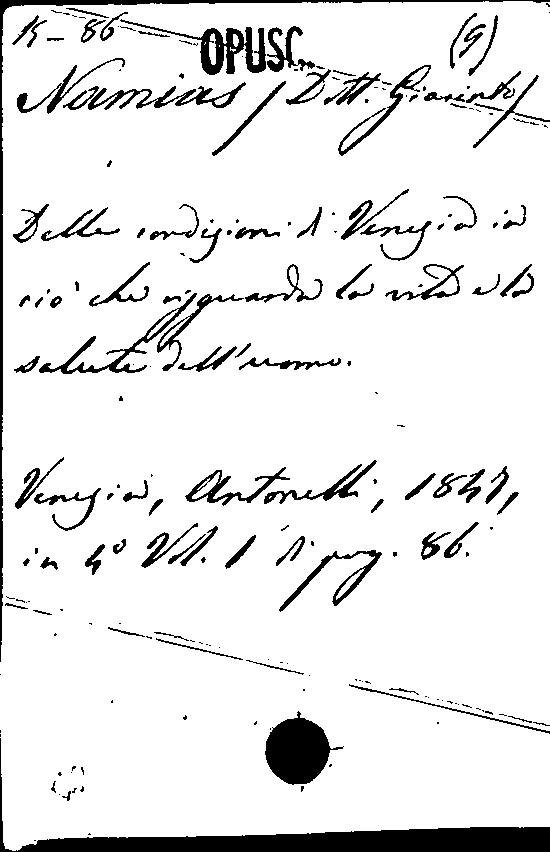 15 - 86 OPUSC. (9)
Namias / Dott. Giacinto /
Delle condizioni di Venezia in
ciò che risguarda la vita e la
salute dell'uomo.
Venezia, Antonelli, 1847,
in 4° Vol. 1 di pag. 86.